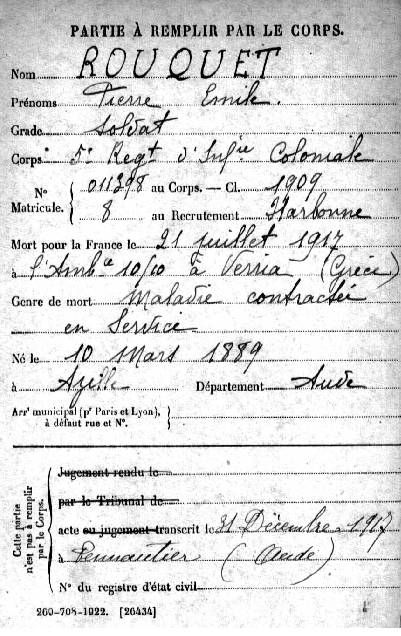 PARTIE À REMPLIR PAR LE CORPS.
Nom ROUQUET
Prénoms Pierre Emile.
Grade Soldat
Corps 5e Regt d'Infie Coloniale
N° Matricule. { 011398 au Corps. — Cl. 1909
8 au Recrutement Narbonne
Mort pour la France le 21 juillet 1917
à l'Ambce 10/10 à Verria (Grèce)
Genre de mort Maladie contractée
en Service
Né le 10 Mars 1889
à Département Aude
Arrt municipal (pr Paris et Lyon), à défaut rue et N°. }
Cette partie n'est pas à remplir par le Corps. {
Jugement rendu le
par le Tribunal de
acte ou jugement transcrit le 31 Décembre 1917
à Pennautier (Aude)
N° du registre d'état civil
260-708-1922. [26434]